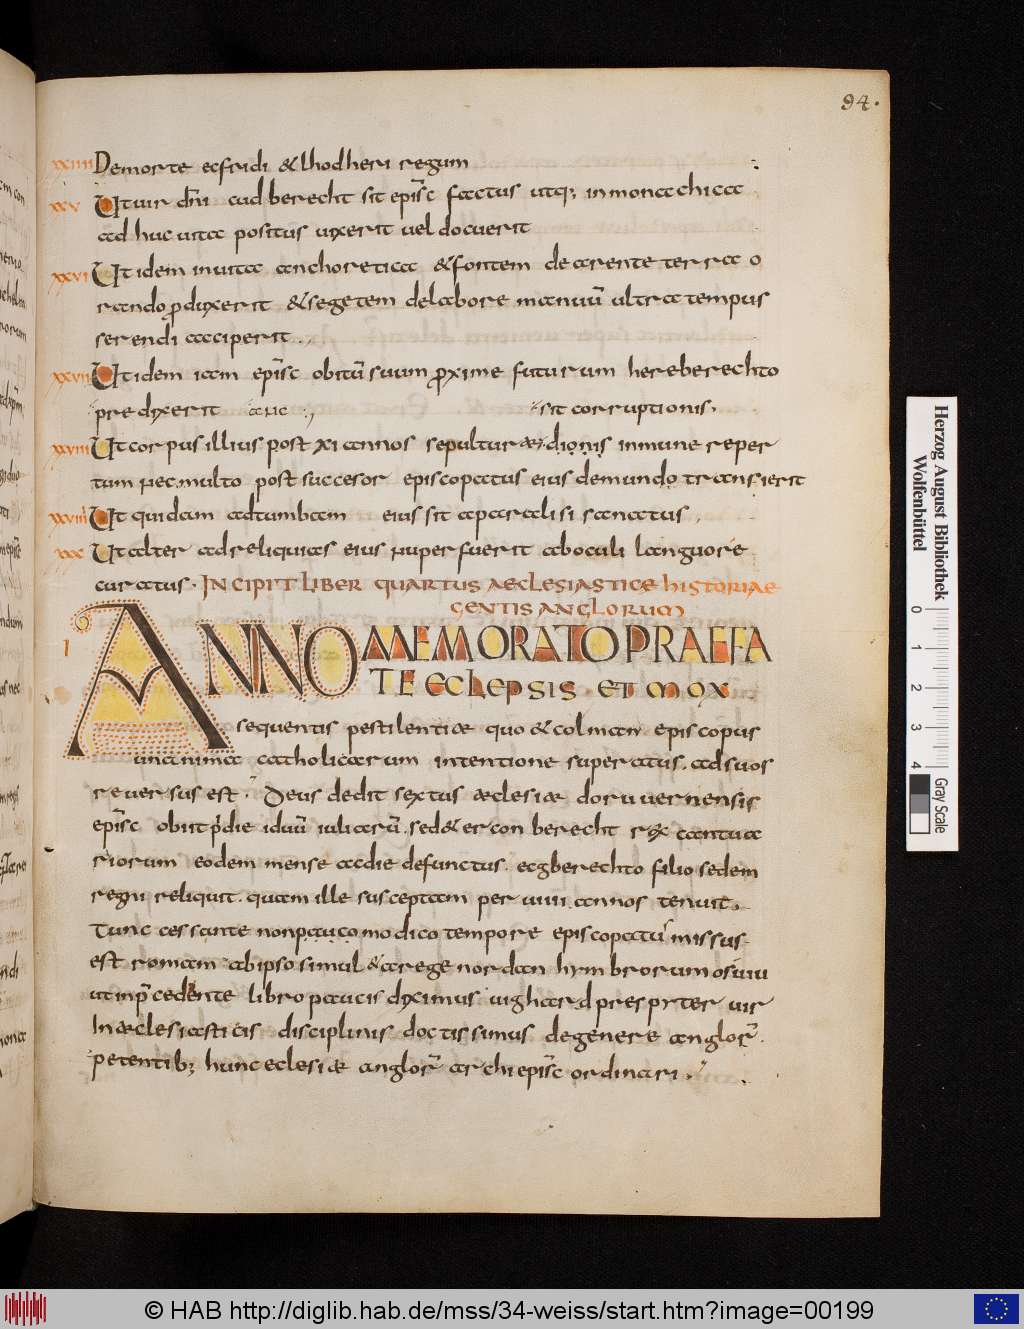 94.
xxiiii Demorte ecfridi & lhodheri regum
xxv Ut uir dñi cudberecht sit epīsc factus utq; inmonachica
adhuc uita positus uixerit uel docuerit
xxvi Ut idem inuita anchoretica & fontem dearente terra o
rando produxerit & segetem delabore manuū ultra tempus
serendi acciperit
xxvii Ut idem iam epīsc obitū suum proxime futurum hereberechto
predixerit
sit corruptionis.
xxviii Ut corpus illius post xi annos sepulturae inmune reper
tum nec multo post succesor episcopatus eius demundo transierit
xxviiii Ut quidam adtumbam eius sit aparalisi sanatus
xxx Ut alter adreliquias eius nuper fuerit aboculi languore
curatus. INCIPIT LIBER QUARTUS AECLESIASTICAE HISTORIAE
GENTIS ANGLORUM
I ANNO MEMORATO PRAEFA
TE ECLEPSIS ET MOX
sequentis pestilentiae quo & colman episcopus
unanima catholicarum intentione superatus. adsuos
reuersus est. Deus dedit sextus aeclesiae doruuernensis
epīsc obiit pridie iduū iuliarū. sed & erconberecht rex cantua
riorum eodem mense acdie defunctus. ecgberechto filio sedem
regni reliquit. quam ille susceptam per uiiii annos tenuit.
Tunc cessante nonpauco modico tempore episcopatū missus
est romam abipso simul & arege nordanhymbrorum osuiu
ut inp̄cedente libro paucis diximus uighard prespyter uir
In aeclesiasticis disciplinis doctissimus degenere anglor̄.
petentib; hunc eclesiae anglor̄ archiepīsc ordinari.
Herzog August Bibliothek
Wolfenbüttel
0 1 2 3 4
Gray Scale
© HAB http://diglib.hab.de/mss/34-weiss/start.htm?image=00199